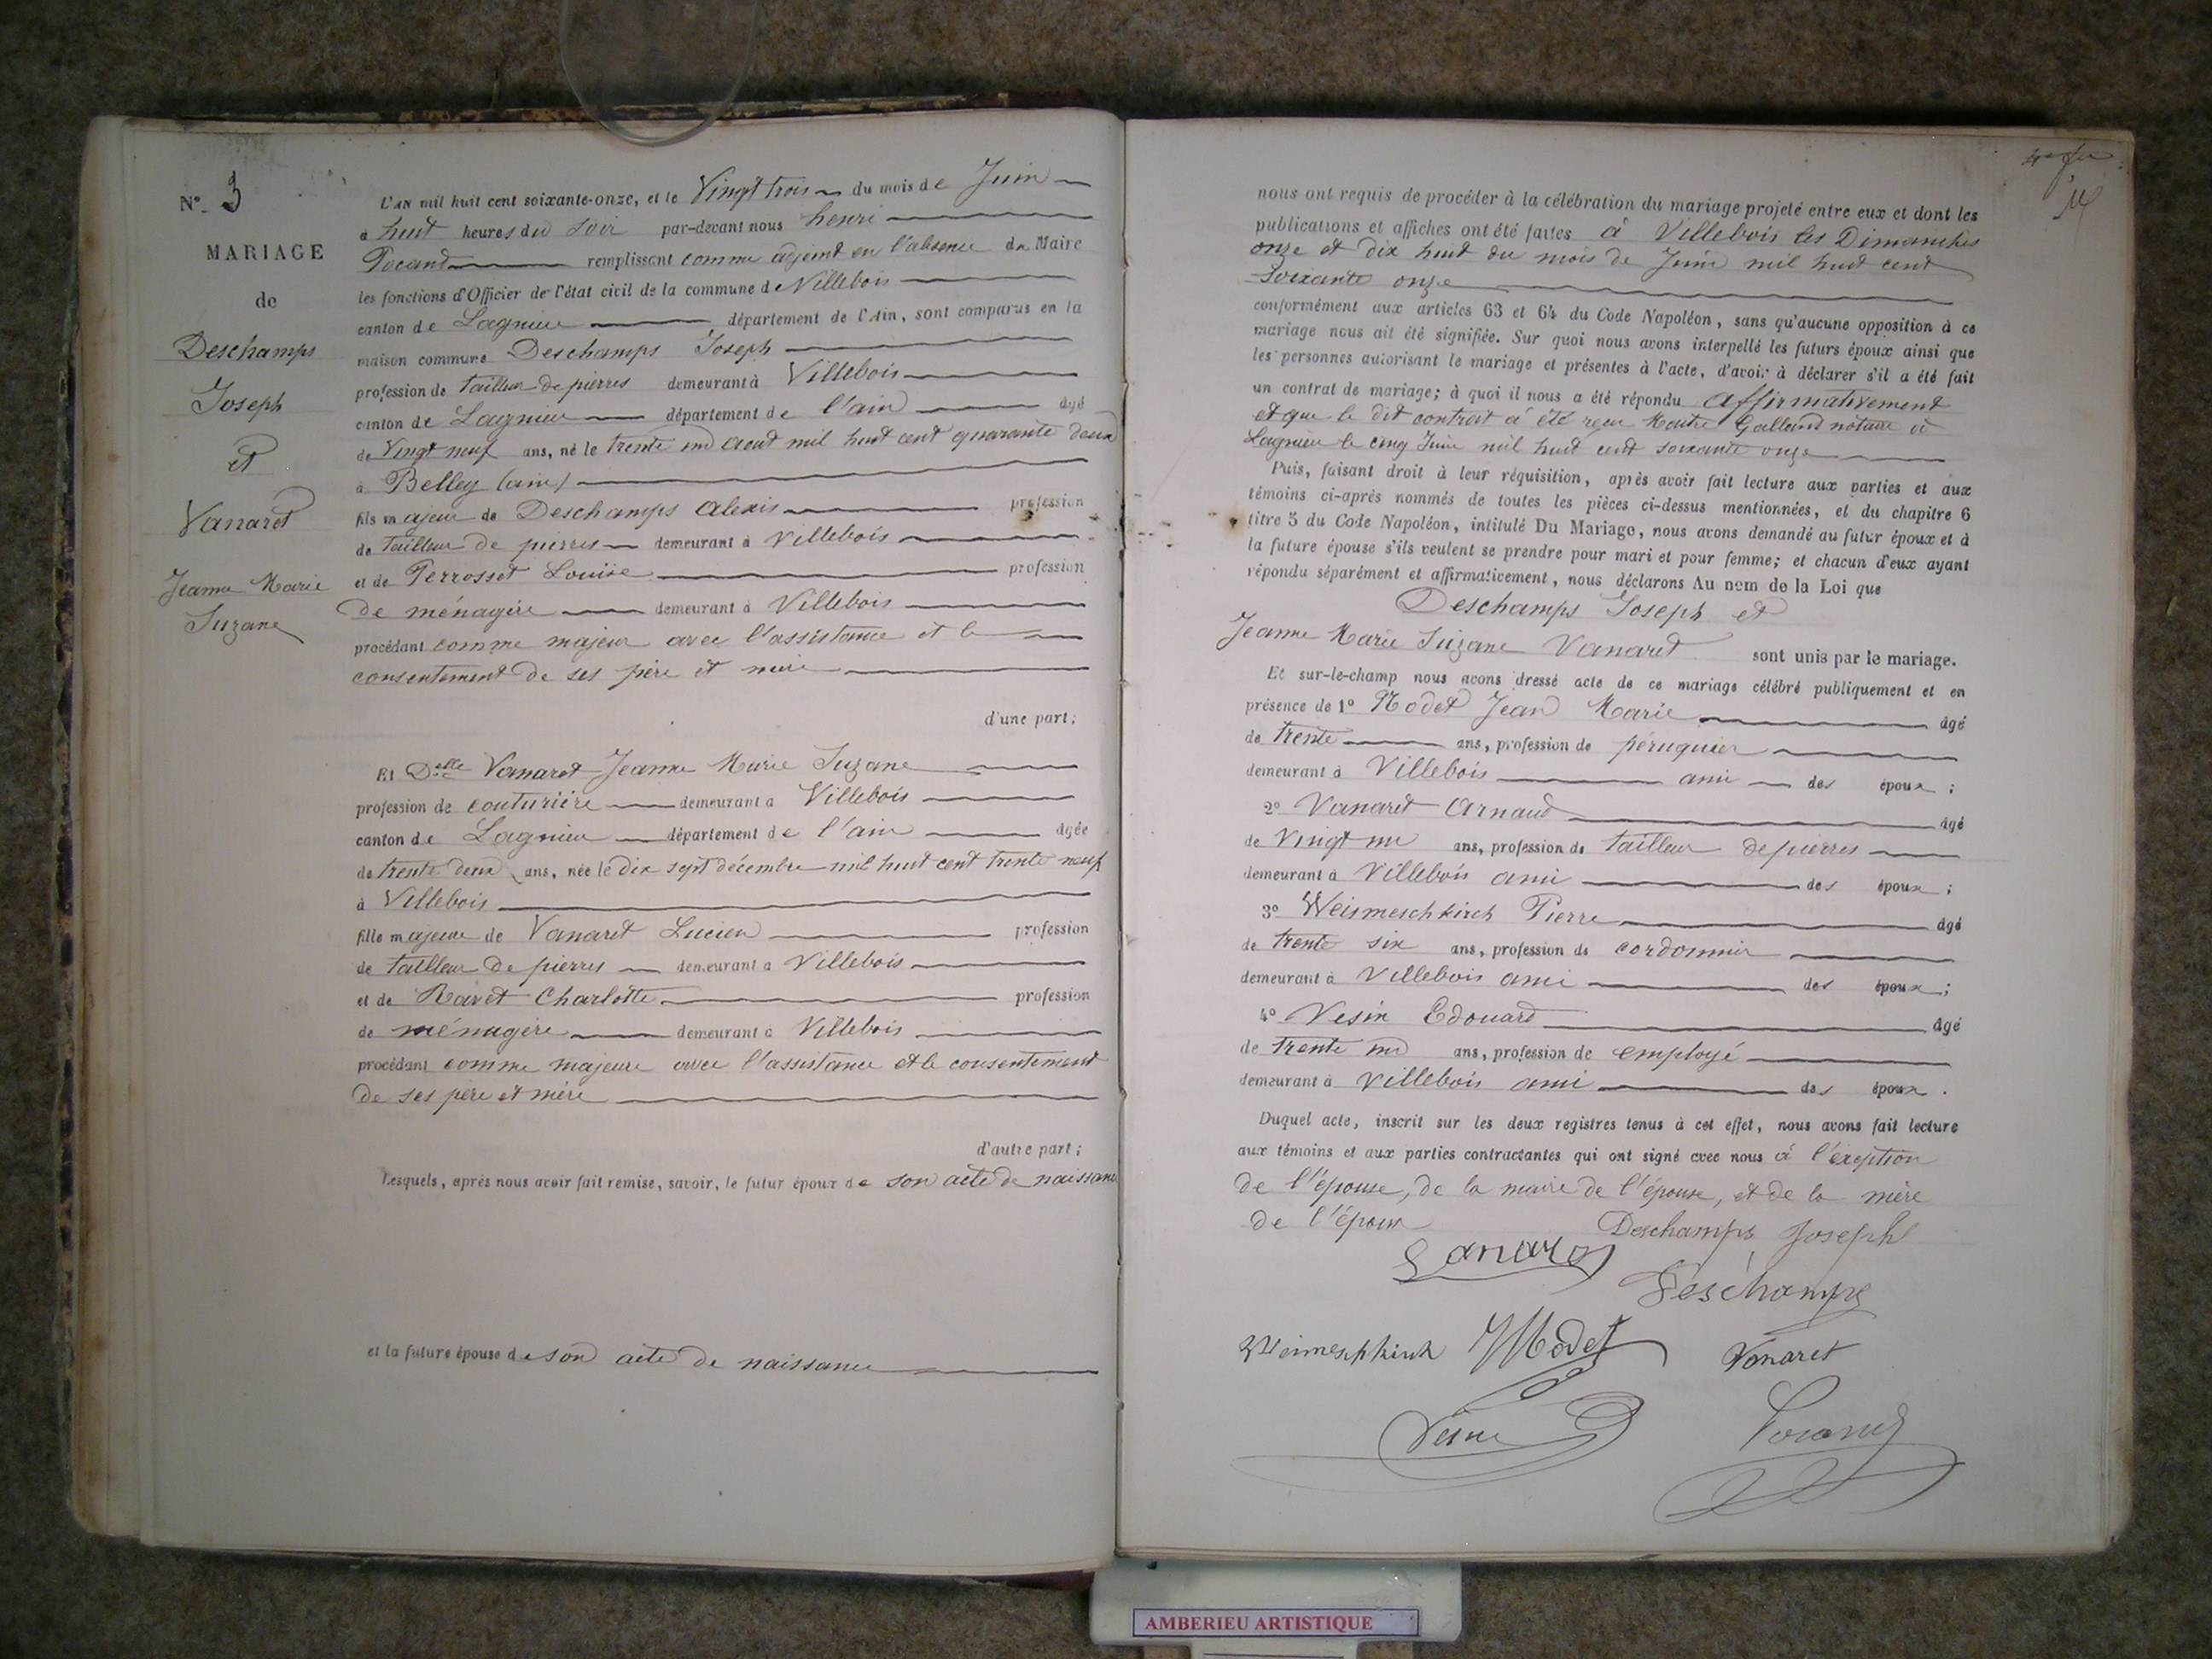 N° 3
MARIAGE
de
Deschamps
Joseph
et
Vanaret
Jeanne Marie
Suzane
L'AN mil huit cent soixante-onze, et le Vingt trois du mois de Juin
a huit heures du soir par-devant nous henri
Pocand remplissant comme adjoint en l'absence du Maire
les fonctions d'Officier de l'état civil de la commune de Villebois
canton de Lagnieu département de l'Ain, sont comparus en la
maison commune Deschamps Joseph
profession de tailleur de pierres demeurant à Villebois
canton de Lagnieu département de l'ain âgé
de Vingt neuf ans, né le trente un aout mil huit cent quarante deux
à Belley (ain)
fils majeur de Deschamps Alexis profession
de tailleur de pierres demeurant à Villebois
et de Perrosset Louise profession
de ménagère demeurant à Villebois
procédant comme majeur avec l'assistance et le
consentement de ses père et mère
d'une part;
Et Delle Vanaret Jeanne Marie Suzane
profession de couturière demeurant à Villebois
canton de Lagnieu département de l'ain âgée
de trente deux ans, née le dix sept décembre mil huit cent trente neuf
à Villebois
fille majeure de Vanaret Lucien profession
de tailleur de pierres demeurant à Villebois
et de Ravet Charlotte profession
de ménagère demeurant à Villebois
procédant comme majeure avec l'assistance et le consentement
de ses père et mère
d'autre part;
Lesquels, après nous avoir fait remise, savoir, le futur époux de son acte de naissance
et la future épouse de son acte de naissance
nous ont requis de procéder à la célébration du mariage projeté entre eux et dont les
publications et affiches ont été faites à Villebois les Dimanches
onze et dix huit du mois de Juin mil huit cent
Soixante onze
conformément aux articles 63 et 64 du Code Napoléon, sans qu'aucune opposition à ce
mariage nous ait été signifiée. Sur quoi nous avons interpellé les futurs époux ainsi que
les personnes autorisant le mariage et présentes à l'acte, d'avoir à déclarer s'il a été fait
un contrat de mariage; à quoi il nous a été répondu affirmativement
et que le dit contrat a été reçu Maitre Galland notaire à
Lagnieu le cinq Juin mil huit cent soixante onze
Puis, faisant droit à leur réquisition, après avoir fait lecture aux parties et aux
témoins ci-après nommés de toutes les pièces ci-dessus mentionnées, et du chapitre 6
titre 5 du Code Napoléon, intitulé Du Mariage, nous avons demandé au futur époux et à
la future épouse s'ils veulent se prendre pour mari et pour femme; et chacun d'eux ayant
répondu séparément et affirmativement, nous déclarons Au nom de la Loi que
Deschamps Joseph et
Jeanne Marie Suzane Vanaret sont unis par le mariage.
Et sur-le-champ nous avons dressé acte de ce mariage célébré publiquement et en
présence de 1° Modet Jean Marie âgé
de trente ans, profession de péruquier
demeurant à Villebois ami des époux;
2° Vanaret Arnaud âgé
de Vingt un ans, profession de tailleur de pierres
demeurant à Villebois ami des époux;
3° Weismeschkirch Pierre âgé
de trente six ans, profession de cordonnier
demeurant à Villebois ami des époux;
4° Vesin Edouard âgé
de trente un ans, profession de employé
demeurant à Villebois ami des époux.
Duquel acte, inscrit sur les deux registres tenus à cet effet, nous avons fait lecture
aux témoins et aux parties contractantes qui ont signé avec nous à l'exeption
de l'épouse, de la maire de l'épouse, et de la mère
de l'époux
Deschamps Joseph
Deschamps
Modet
Vanaret
Pocand
AMBERIEU ARTISTIQUE